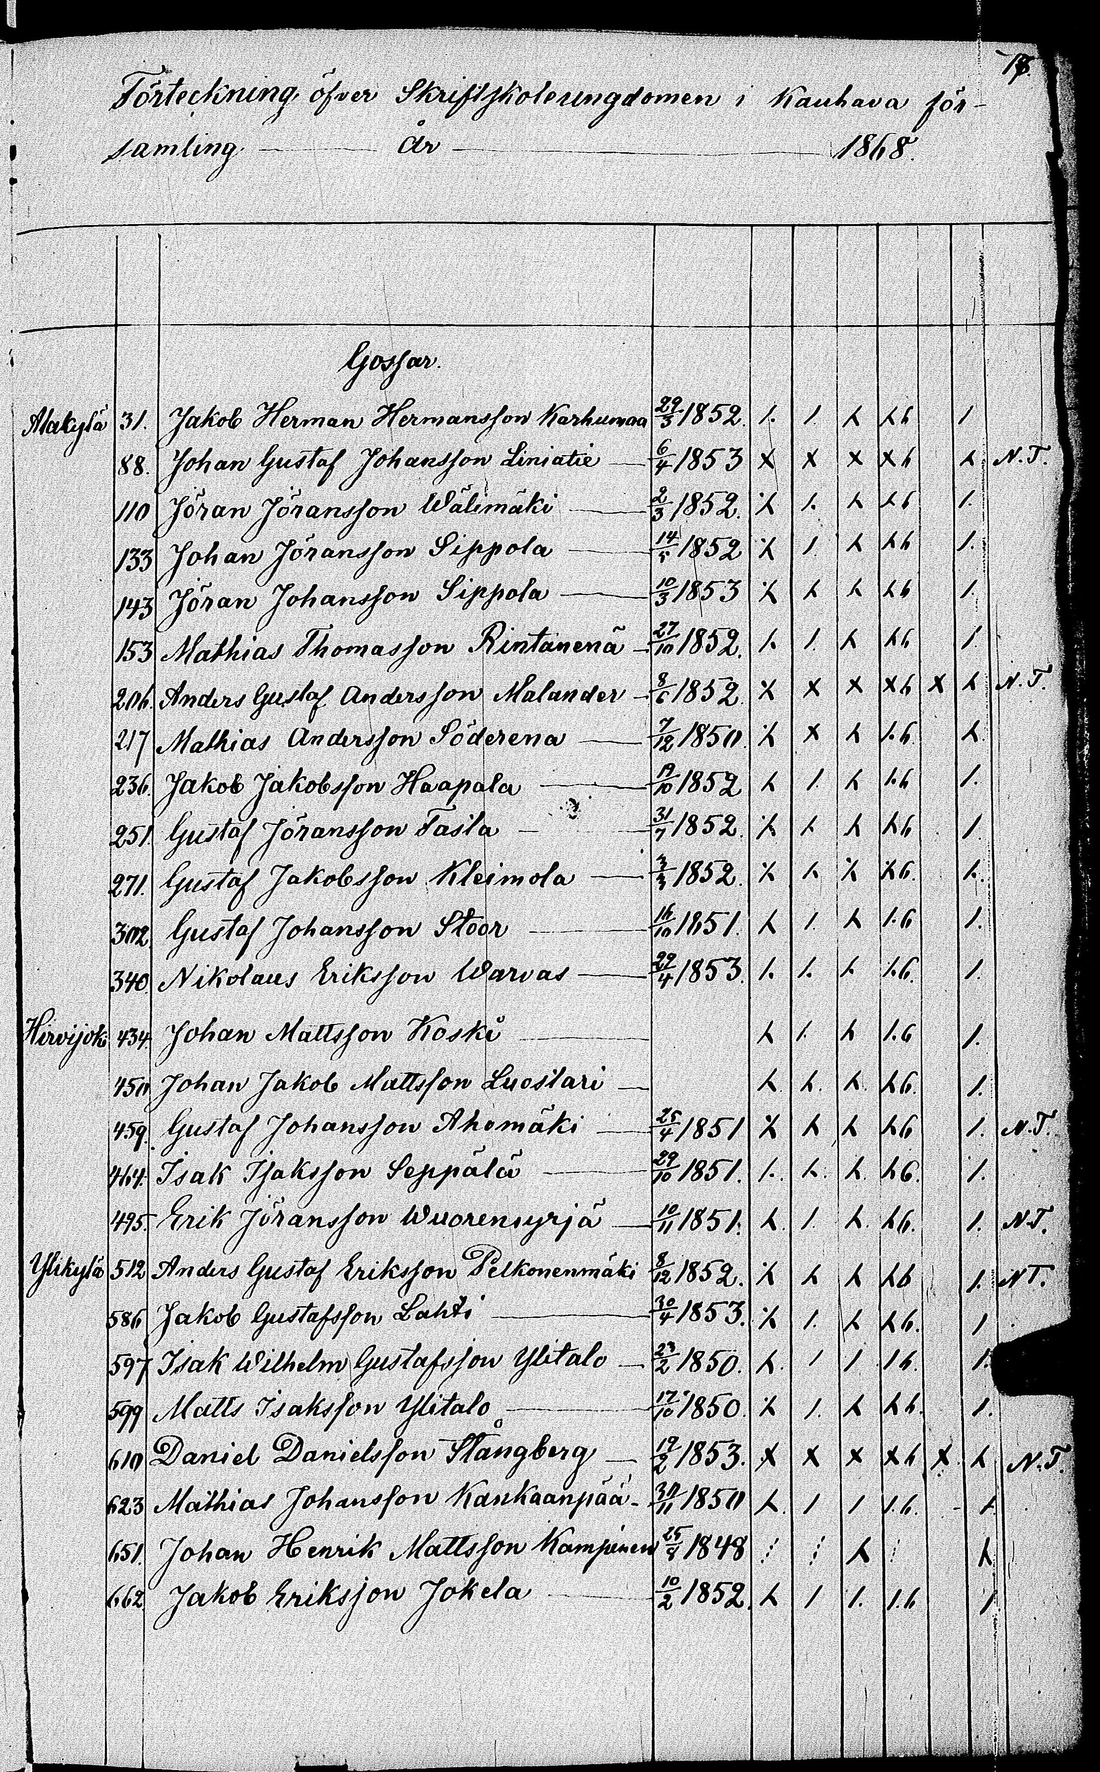 Förteckning öfver Skriftskoleungdomen i Kauhava för-
samling år 1868.
Gossar.
Alakylä 31. Jakob Herman Hermansson Karhumaa 29/3 1852. 1. 1. λ λ6 1
88. Johan Gustaf Johansson Liniatie 6/4 1853 x x x x6 λ N.T.
110 Jöran Jöransson Wälimäki 2/3 1852. λ 1. λ λ6 1.
133 Johan Jöransson Sippola 14/5 1852 λ 1. λ λ6 1.
143 Jöran Johansson Sippola 10/3 1853 λ λ λ λ6 1.
153 Mathias Thomasson Rintanenä 27/10 1852. λ 1. λ λ6 1.
206. Anders Gustaf Andersson Malander 8/6 1852 x x x x6 x λ N.T.
217 Mathias Andersson Söderena 7/12 1850. λ x λ 1.6 λ
236. Jakob Jakobsson Haapala 19/10 1852 λ 1 λ 1.6 1.
251. Gustaf Jöransson Tasta 31/7 1852. λ λ λ λ6 1.
271. Gustaf Jakobsson Kleimola 3/3 1852. λ λ λ λ6. 1.
302. Gustaf Johansson Stoor 16/10 1851. λ 1. λ 1.6 1.
340. Nikolaus Eriksson Warvas 29/4 1853. 1. 1. λ 1.6. 1.
Hirvijoki 434. Johan Mattsson Koski λ 1. λ 1.6 1.
450 Johan Jakob Mattsson Luostari λ λ. λ. λ6. 1.
459. Gustaf Johansson Ahomäki 25/4 1851 λ λ λ λ6 1. N.T.
464. Isak Isaksson Seppälä 29/10 1851. 1. λ. λ. λ6. 1.
495. Erik Jöransson Wuorensyrjä 10/11 1851. λ. 1. λ. λ6. 1. N.T.
Ylikylä 512 Anders Gustaf Eriksson Pelkonenmäki 8/12 1852. λ λ λ λ6 1. N.T.
586 Jakob Gustafsson Lahti 30/4 1853. λ 1. λ λ6. 1
597 Isak Wilhelm Gustafsson Ylitalo 23/2 1850. λ. 1 1 16. 1.
599 Matts Isaksson Ylitalo 17/10 1850. λ 1. λ λ6. 1.
610 Daniel Danielsson Stångberg 19/2 1853. x x x x6 x. λ N.T.
623 Mathias Johansson Kankaanpää 30/11 1850 λ 1 1 1.6. λ
651. Johan Henrik Mattsson Kampinen 25/8 1848 λ λ
662. Jakob Eriksson Jokela 10/2 1852. λ 1 1. 1.6 1